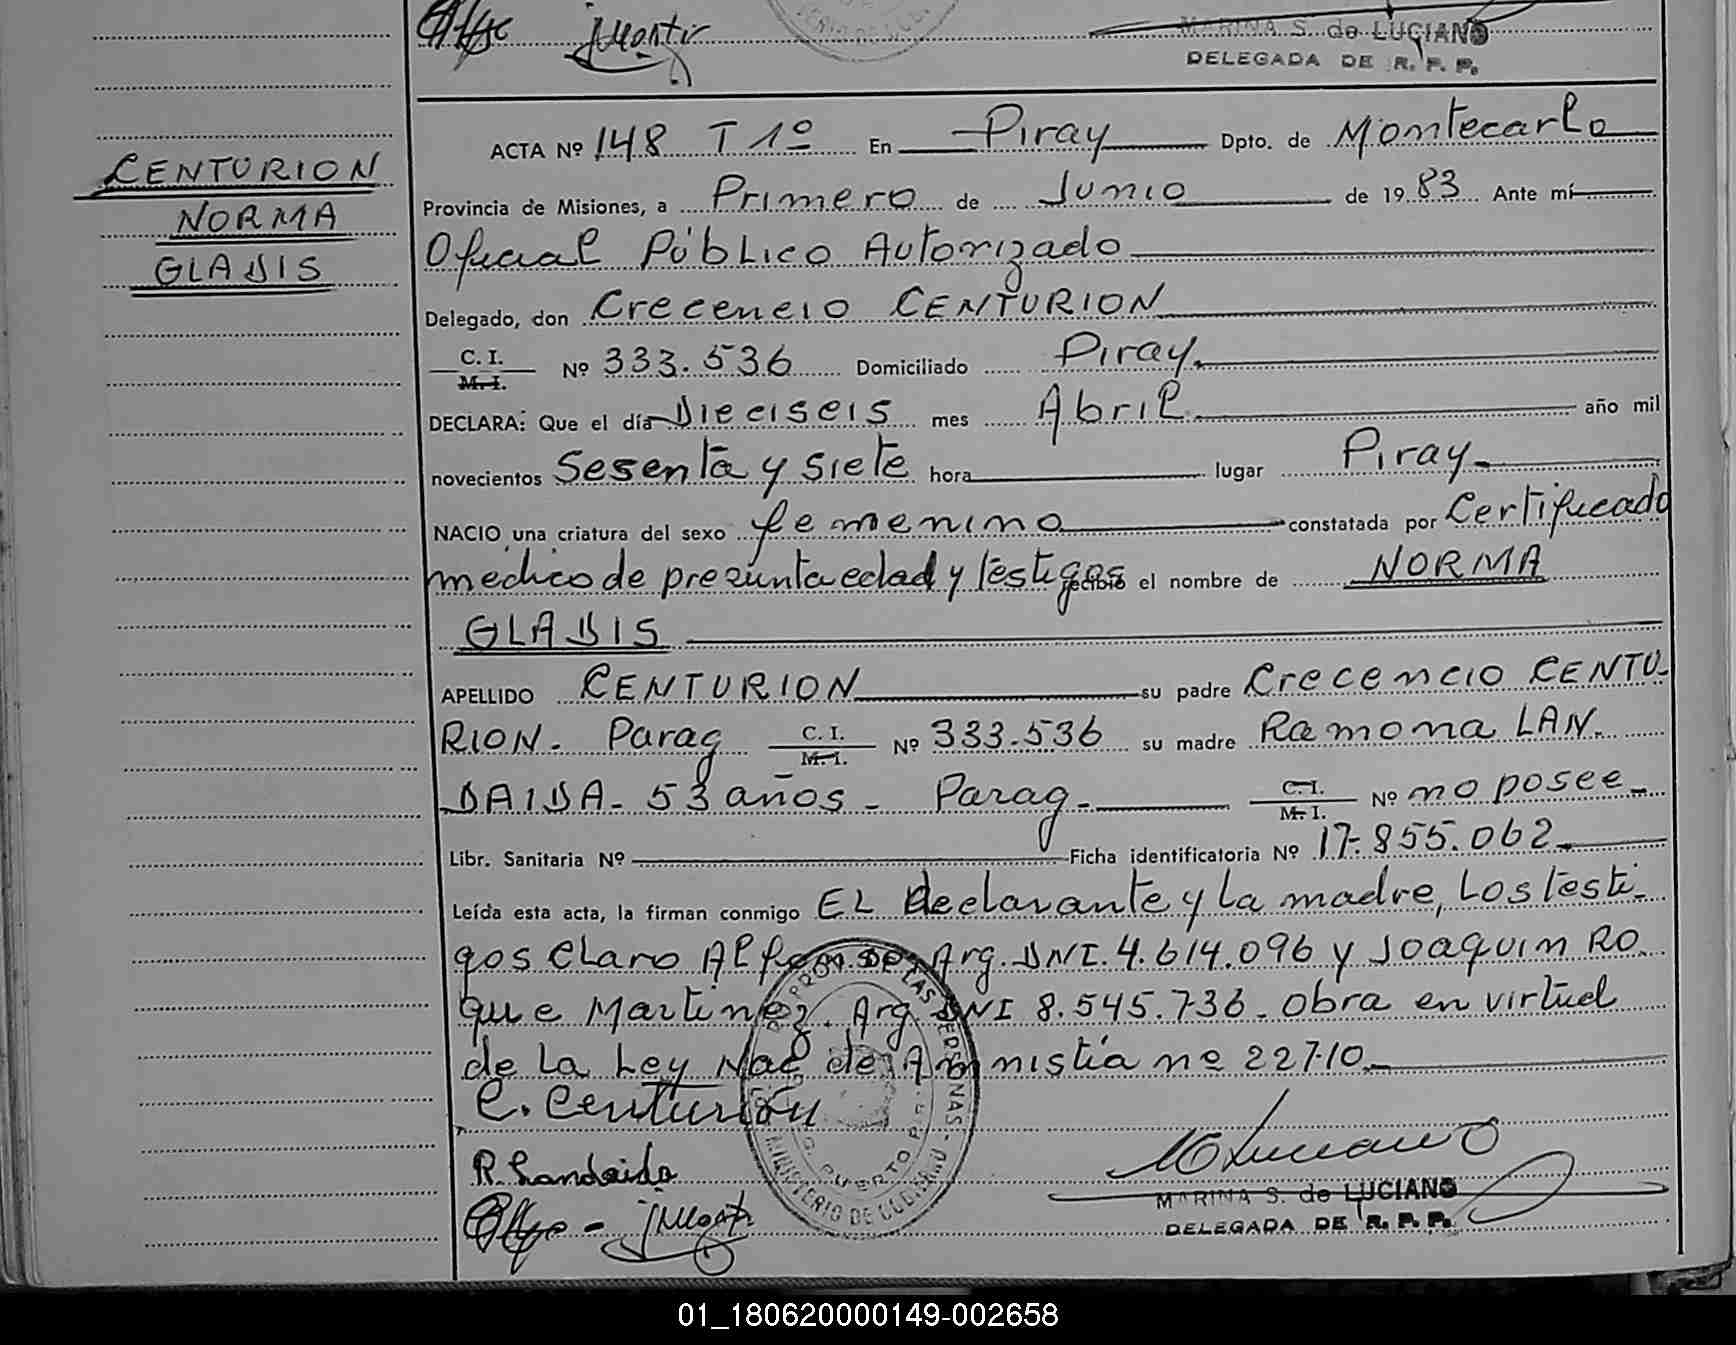 MARINA S. de LUCIANO
DELEGADA DE R. P. P.
CENTURION
NORMA
GLADIS
ACTA Nº 148 T 1º En Piray Dpto. de Montecarlo
Provincia de Misiones, a Primero de Junio de 1983 Ante mí
Oficial Público Autorizado
Delegado, don Crecencio CENTURION
C. I.
M. I. Nº 333.536 Domiciliado Piray.
DECLARA: Que el día Dieciseis mes Abril. año mil
novecientos Sesenta y Siete hora lugar Piray.
NACIO una criatura del sexo femenino constatada por Certificado
medico de presunta edad y testigos recibió el nombre de NORMA
GLADIS
APELLIDO CENTURION su padre Crecencio CENTU-
RION. Parag C. I. M. I. Nº 333.536 su madre Ramona LAN.
DAIDA. 53 años. Parag. C. I. M. I. Nº no posee.
Libr. Sanitaria Nº Ficha identificatoria Nº 17.855.062.
Leída esta acta, la firman conmigo EL declarante y la madre, Los testi-
gos Claro Alfonso. Arg. DNI. 4.614.096 y Joaquin Ro.
que Martinez. Arg. DNI 8.545.736. Obra en virtud
de La Ley Nac de Amnistía nº 22710.
C. Centurión
R. Landaida
MARINA S. de LUCIANO
DELEGADA DE R. P. P.
01_180620000149-002658